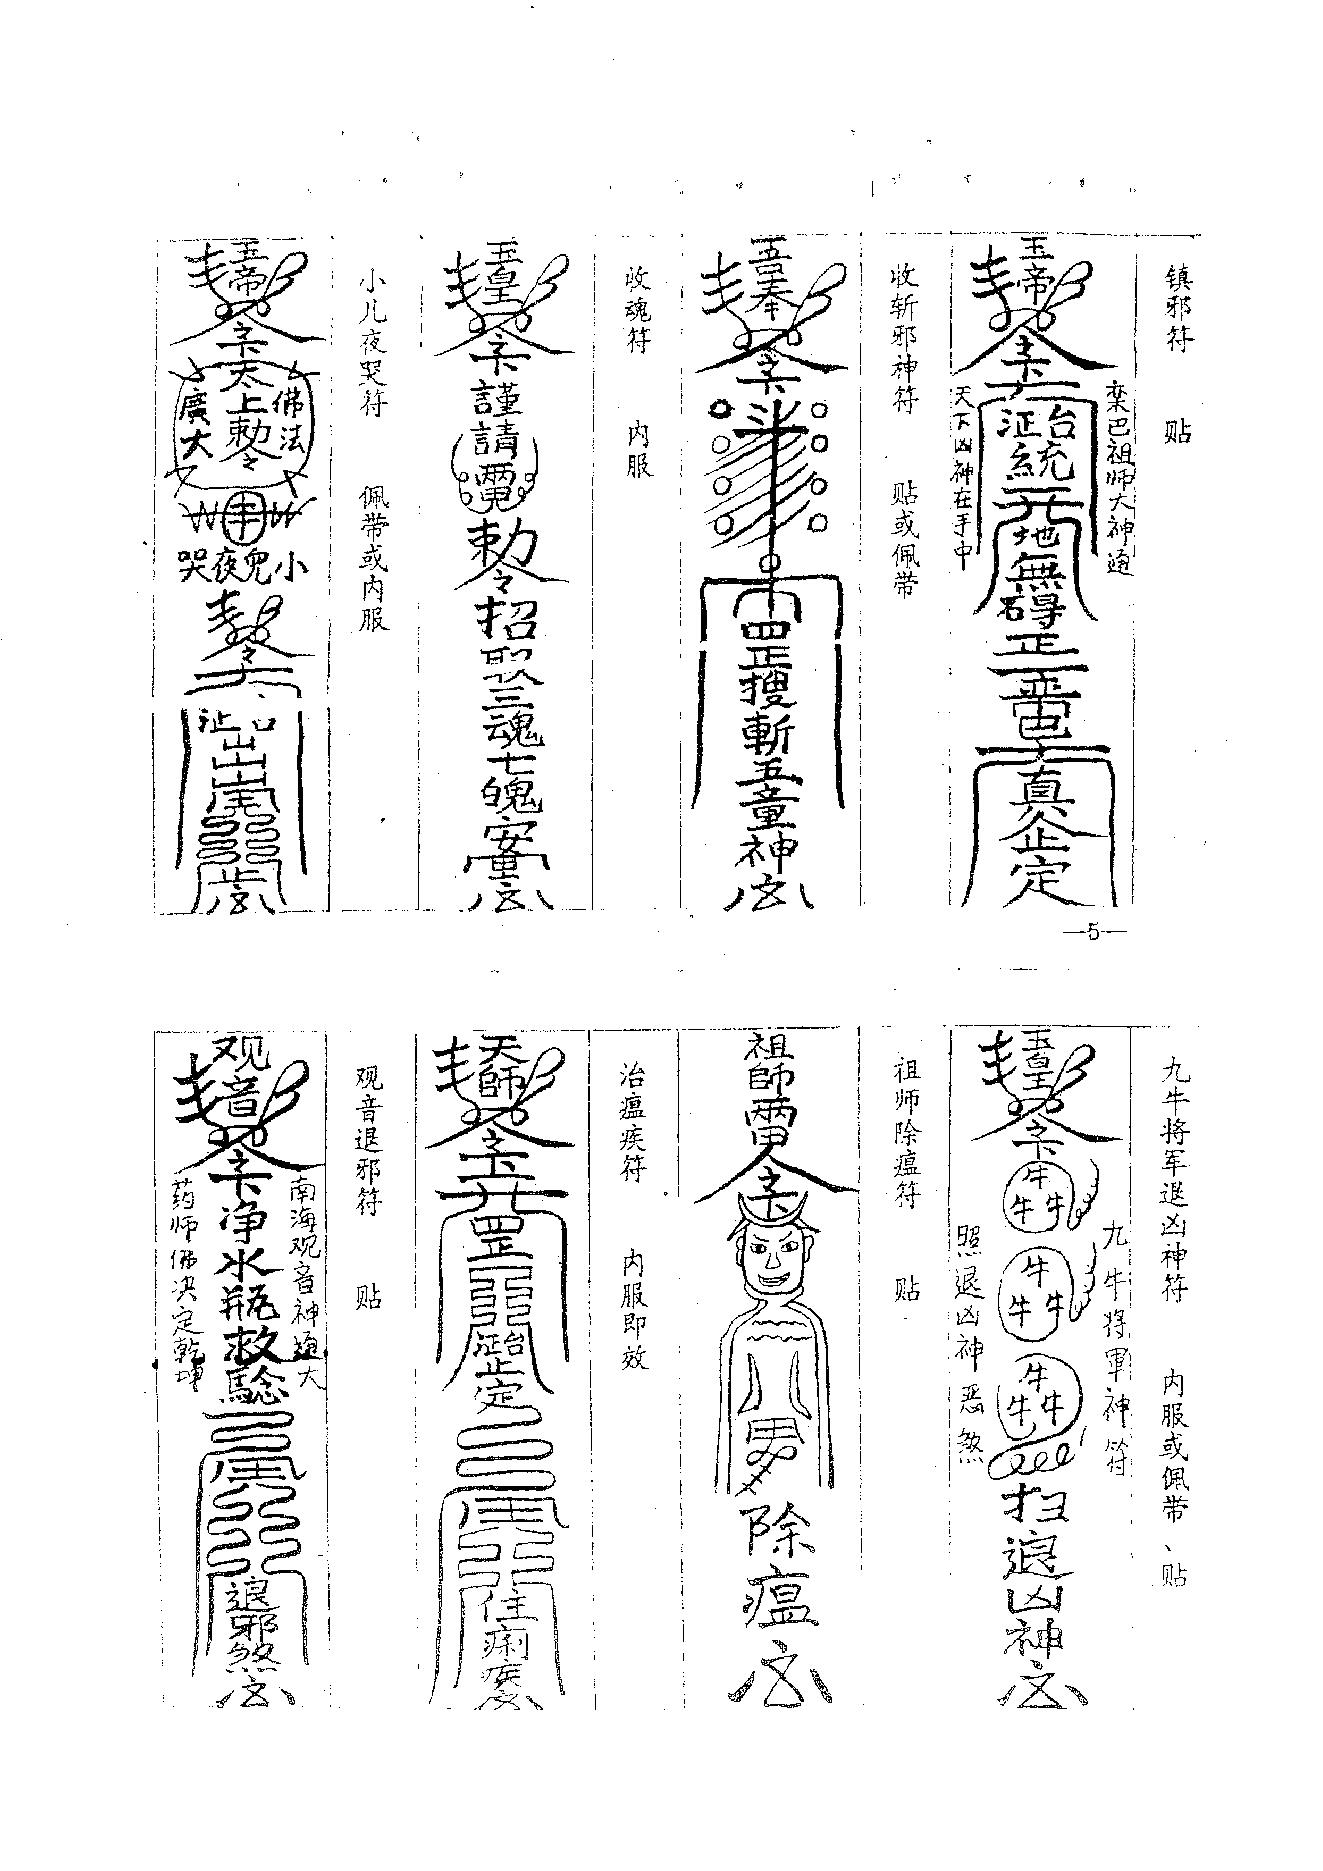 镇邪符 贴
玉帝
栾巴祖师大神通
天下凶神在手中
统
地無碍
正
真
定
收斩邪神符 贴或佩带
吾奉
罡搜斬五童神
收魂符 内服
玉皇
謹請
勅令招
三魂七魄安
小儿夜哭符 佩带或内服
玉帝
太上勅令
佛法
廣大
小兒夜哭
—5—
九牛将军退凶神符 内服或佩带、贴
玉皇
牛
牛牛
牛
牛牛
牛
牛牛
九牛将軍神符
照退凶神恶煞
扫退凶神
祖师除瘟符 贴
祖師
除瘟
治瘟疾符 内服即效
天師
罡
定
住痢疾
观音退邪符 贴
观音
南海观音神通大
药师佛决定乾坤
净水瓶救
退邪煞